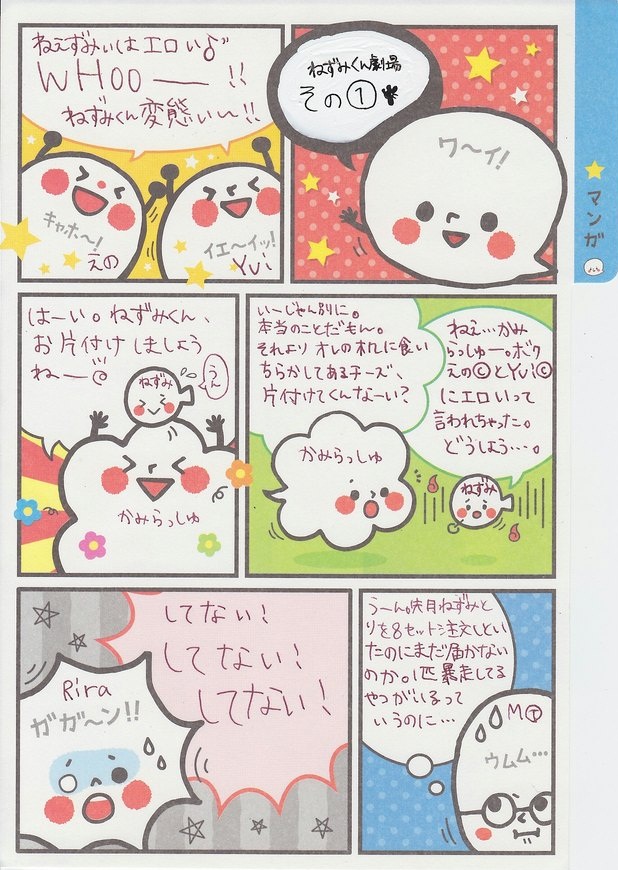 ねずみくん劇場
その①
ワ〜イ!
マンガ
ねえずみぃはエロい♪
WHOO—— !!
ねずみくん変態ぃ〜!!
キャホ〜!
えの
イエ〜イッ!
Yui
ねぇ…かみ
らっしゅー。ボク
えの©とYui©
にエロいって
言われちゃった。
どうしよう…。
ねずみ
いーじゃん別に。
本当のことだもん。
それより オレの机に食い
ちらかしてあるチーズ、
片付けてくんなーい?
かみらっしゅ
はーい。ねずみくん、
お片付けしましょう
ねー
ねずみ
うん
かみらっしゅ
うーん。先月ねずみと
りを8セット注文しとい
たのにまだ届かない
のか。1匹暴走してる
やつがいるって
いうのに…
MⓉ
ウムム…
してない!
してない!
してない!
Rira
ガガ〜ン!!